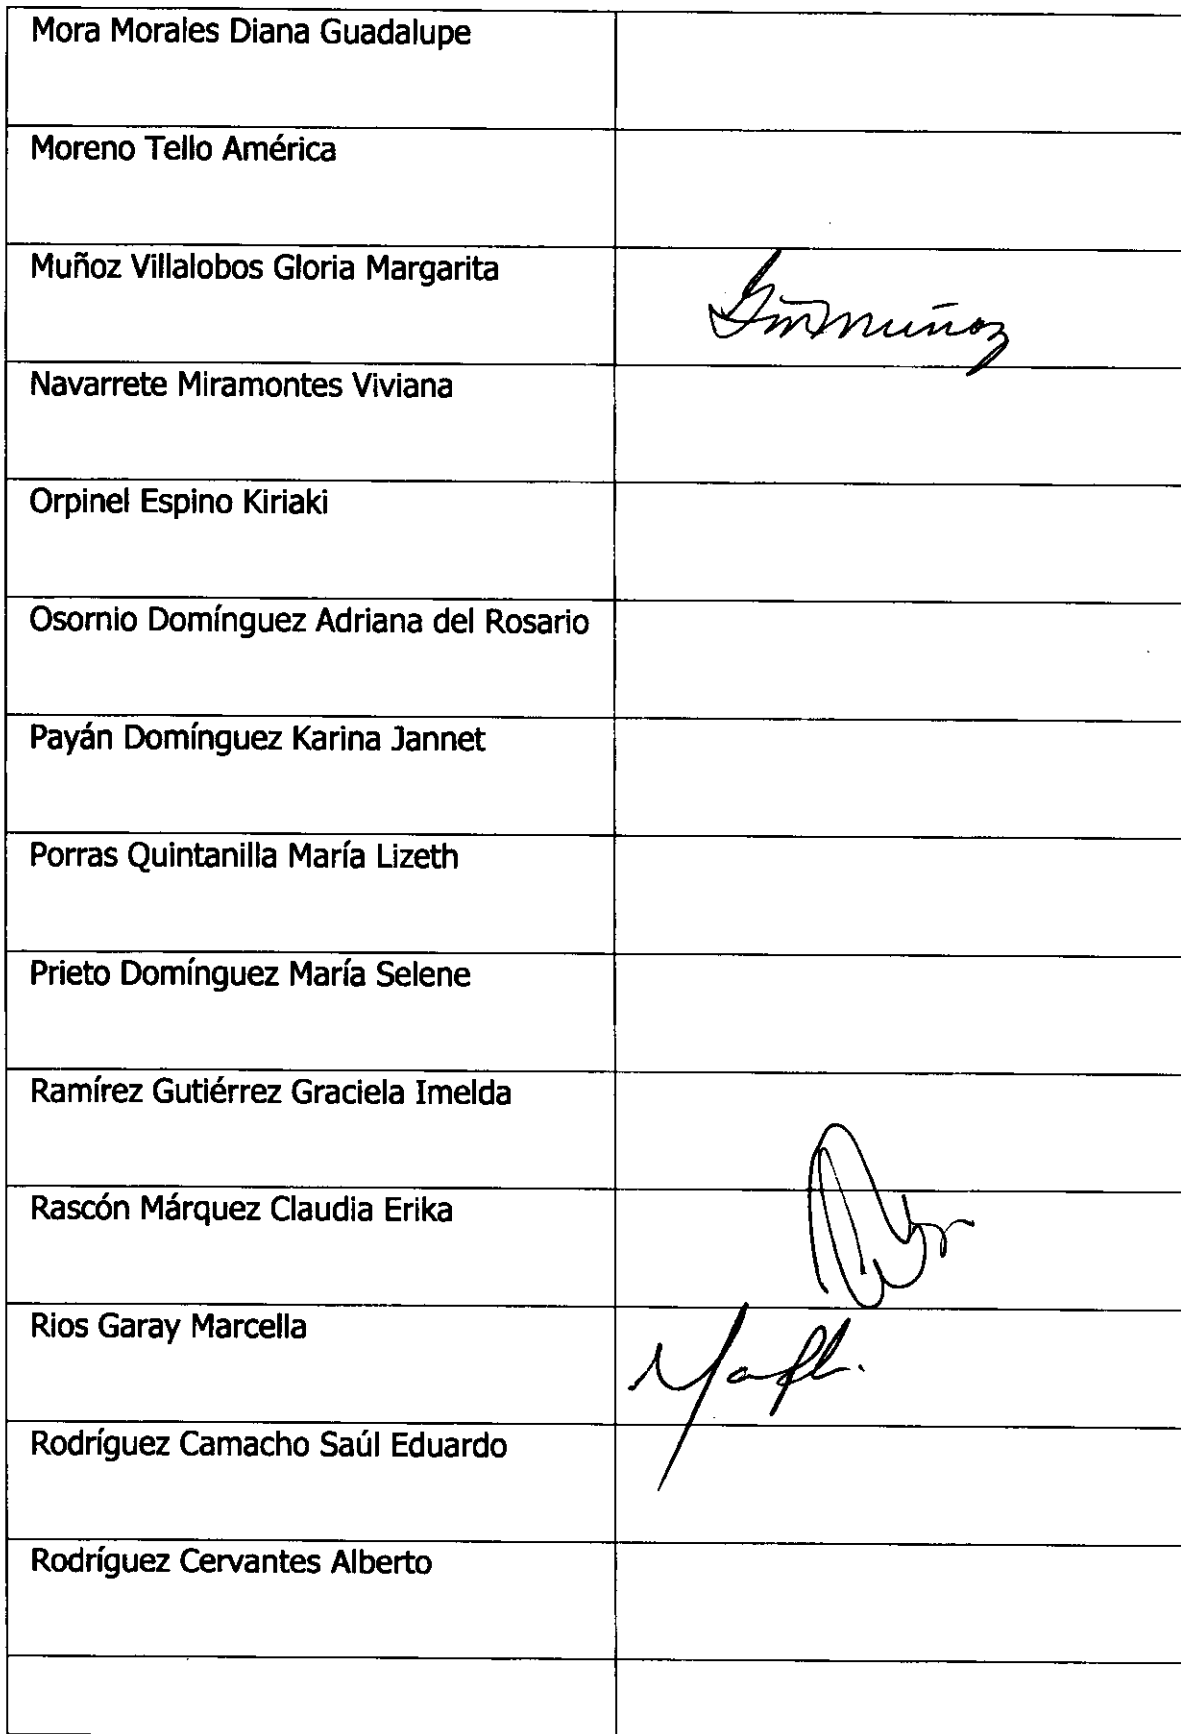 Mora Morales Diana Guadalupe
Moreno Tello América
Muñoz Villalobos Gloria Margarita
Muñoz
Navarrete Miramontes Viviana
Orpinel Espino Kiriaki
Osornio Domínguez Adriana del Rosario
Payán Domínguez Karina Jannet
Porras Quintanilla María Lizeth
Prieto Domínguez María Selene
Ramírez Gutiérrez Graciela Imelda
Rascón Márquez Claudia Erika
Rios Garay Marcella
Rodríguez Camacho Saúl Eduardo
Rodríguez Cervantes Alberto